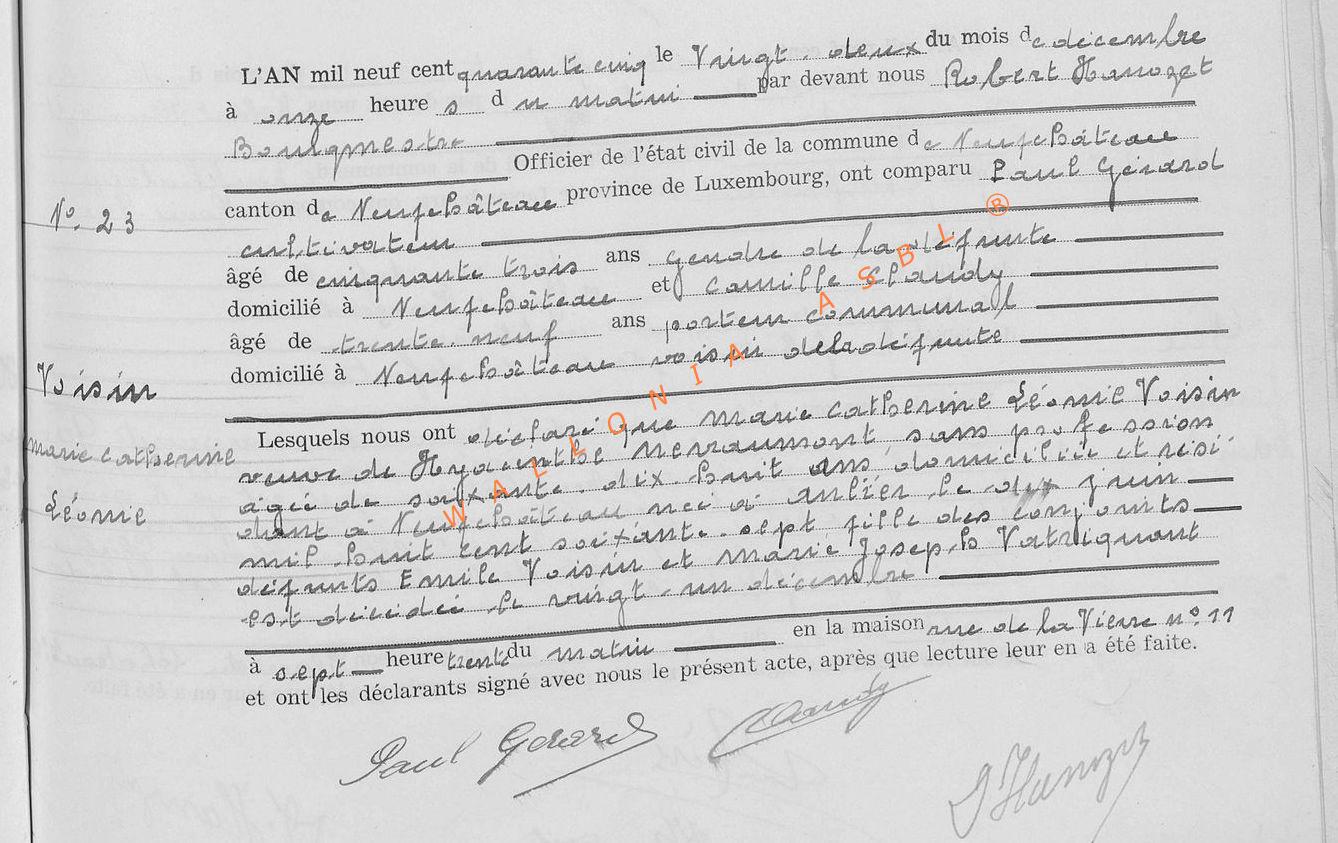 L'AN mil neuf cent quarante cinq le Vingt-deux du mois de décembre
à onze heure s du matin par devant nous Robert Hanozet
Bourgmestre
Officier de l'état civil de la commune de Neufchâteau
canton de Neufchâteau province de Luxembourg, ont comparu Paul Gérard
cultivateur
âgé de cinquante trois ans gendre de la défunte
domicilié à Neufchâteau et Camille Claudy
âgé de trente-neuf ans porteur communal
domicilié à Neufchâteau voisin de la défunte
Lesquels nous ont déclaré que marie catherine Léonie Voisin
veuve de Hyacinthe Neraumont sans profession
âgée de soixante-dix-huit ans domiciliée et rési
dant à Neufchâteau née à Anlier le dix juin
mil huit cent soixante-sept fille des conjoints
défunts Emile Voisin et marie Joseph Vatriquant
est décédée le vingt-un décembre
à sept heure trente du matin en la maison rue de la Vierre n° 11
et ont les déclarants signé avec nous le présent acte, après que lecture leur en a été faite.
Paul Gerard Claudy
Hanozet
N° 23
Voisin
marie catherine
Léonie
WALLONIA ASBL ®